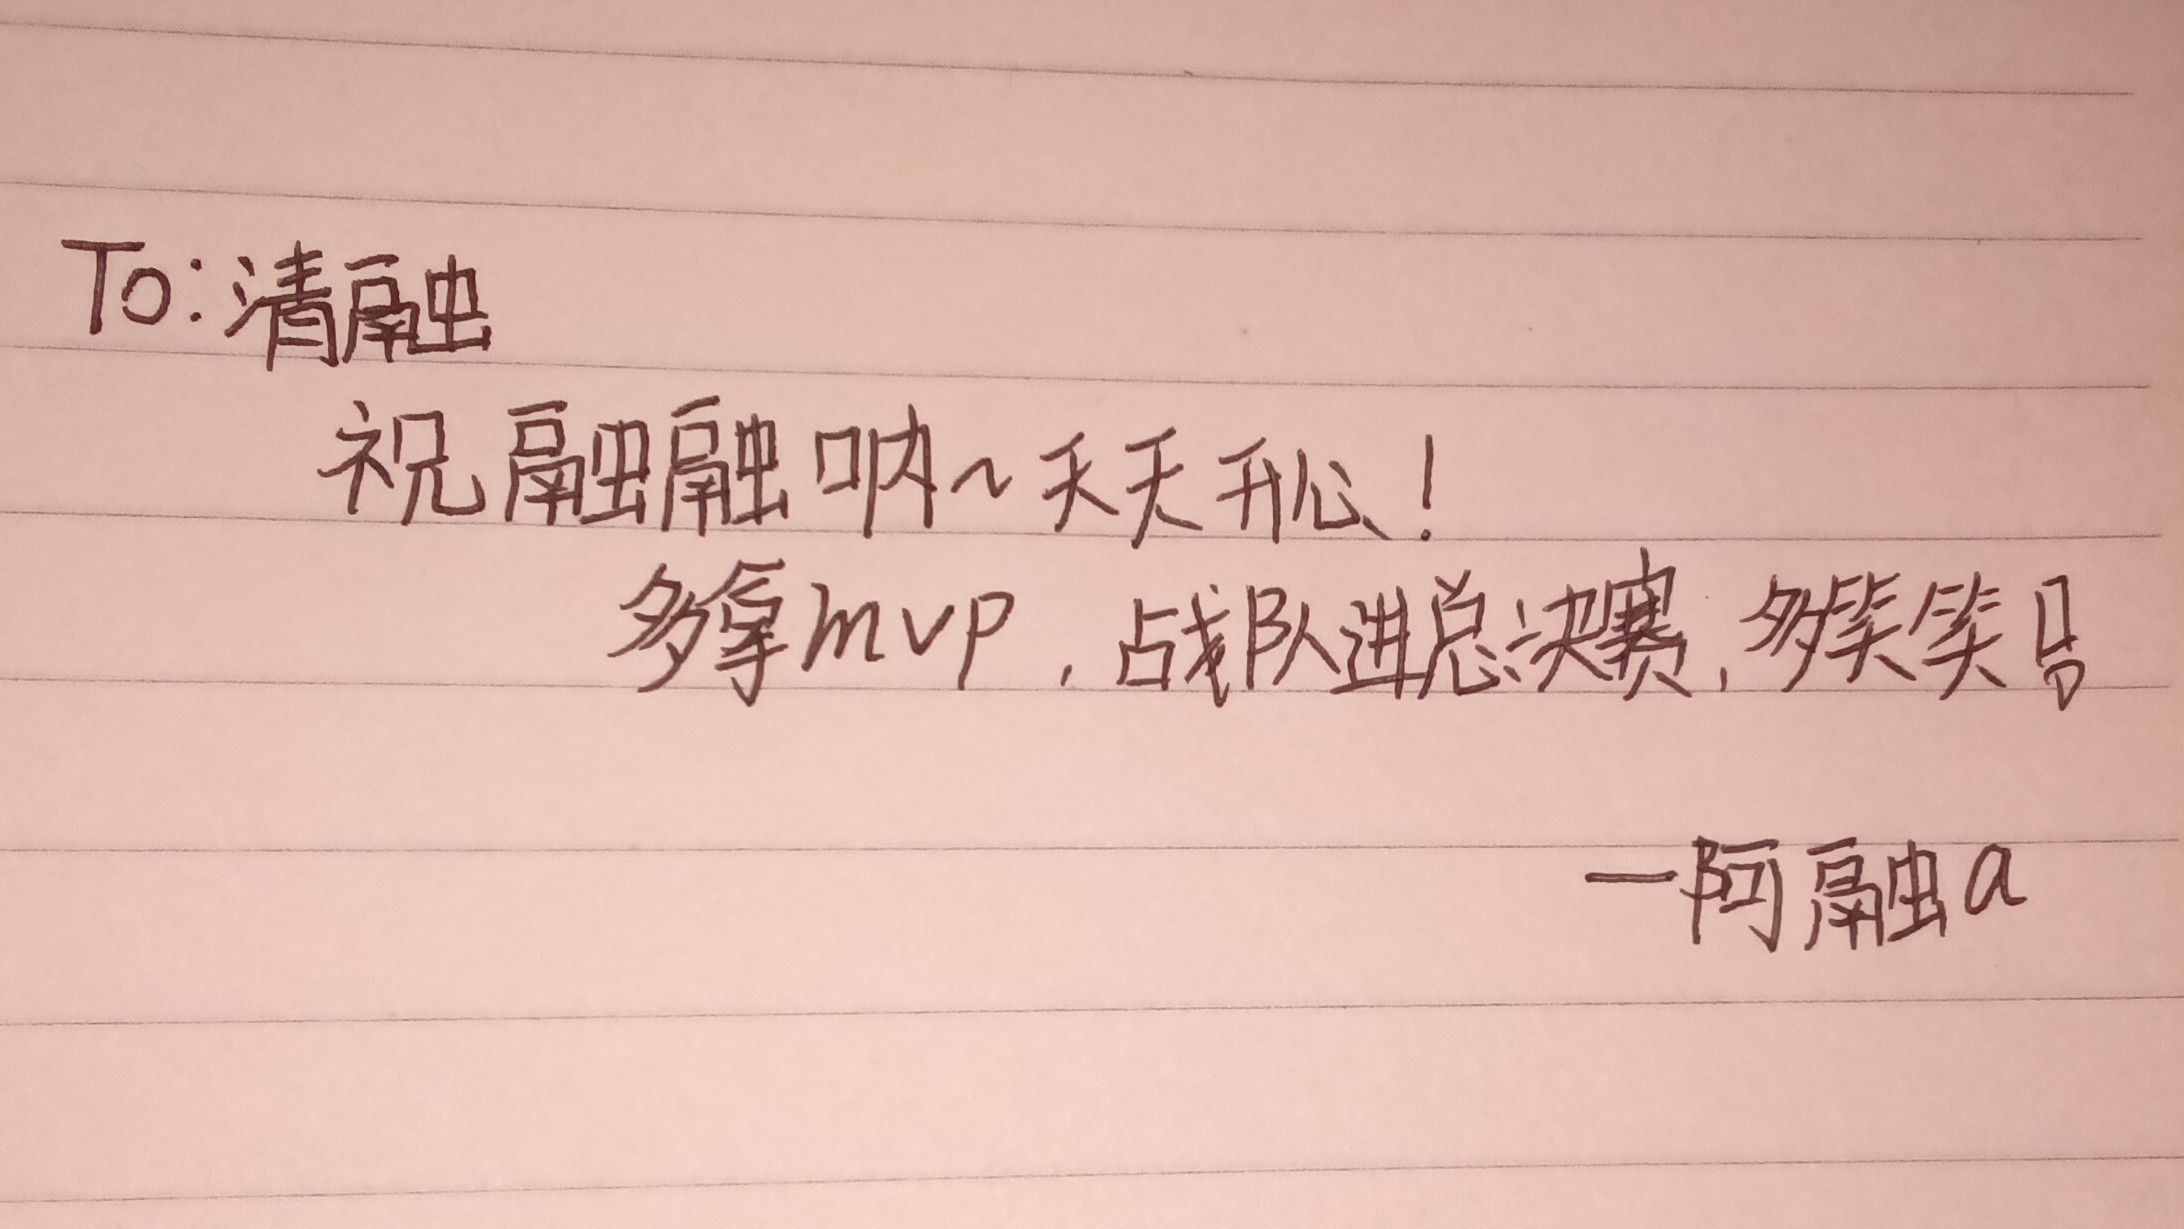 To:清融
祝融融呐~天天开心!
多拿mvp,战队进总决赛,多笑笑!
一阿融a